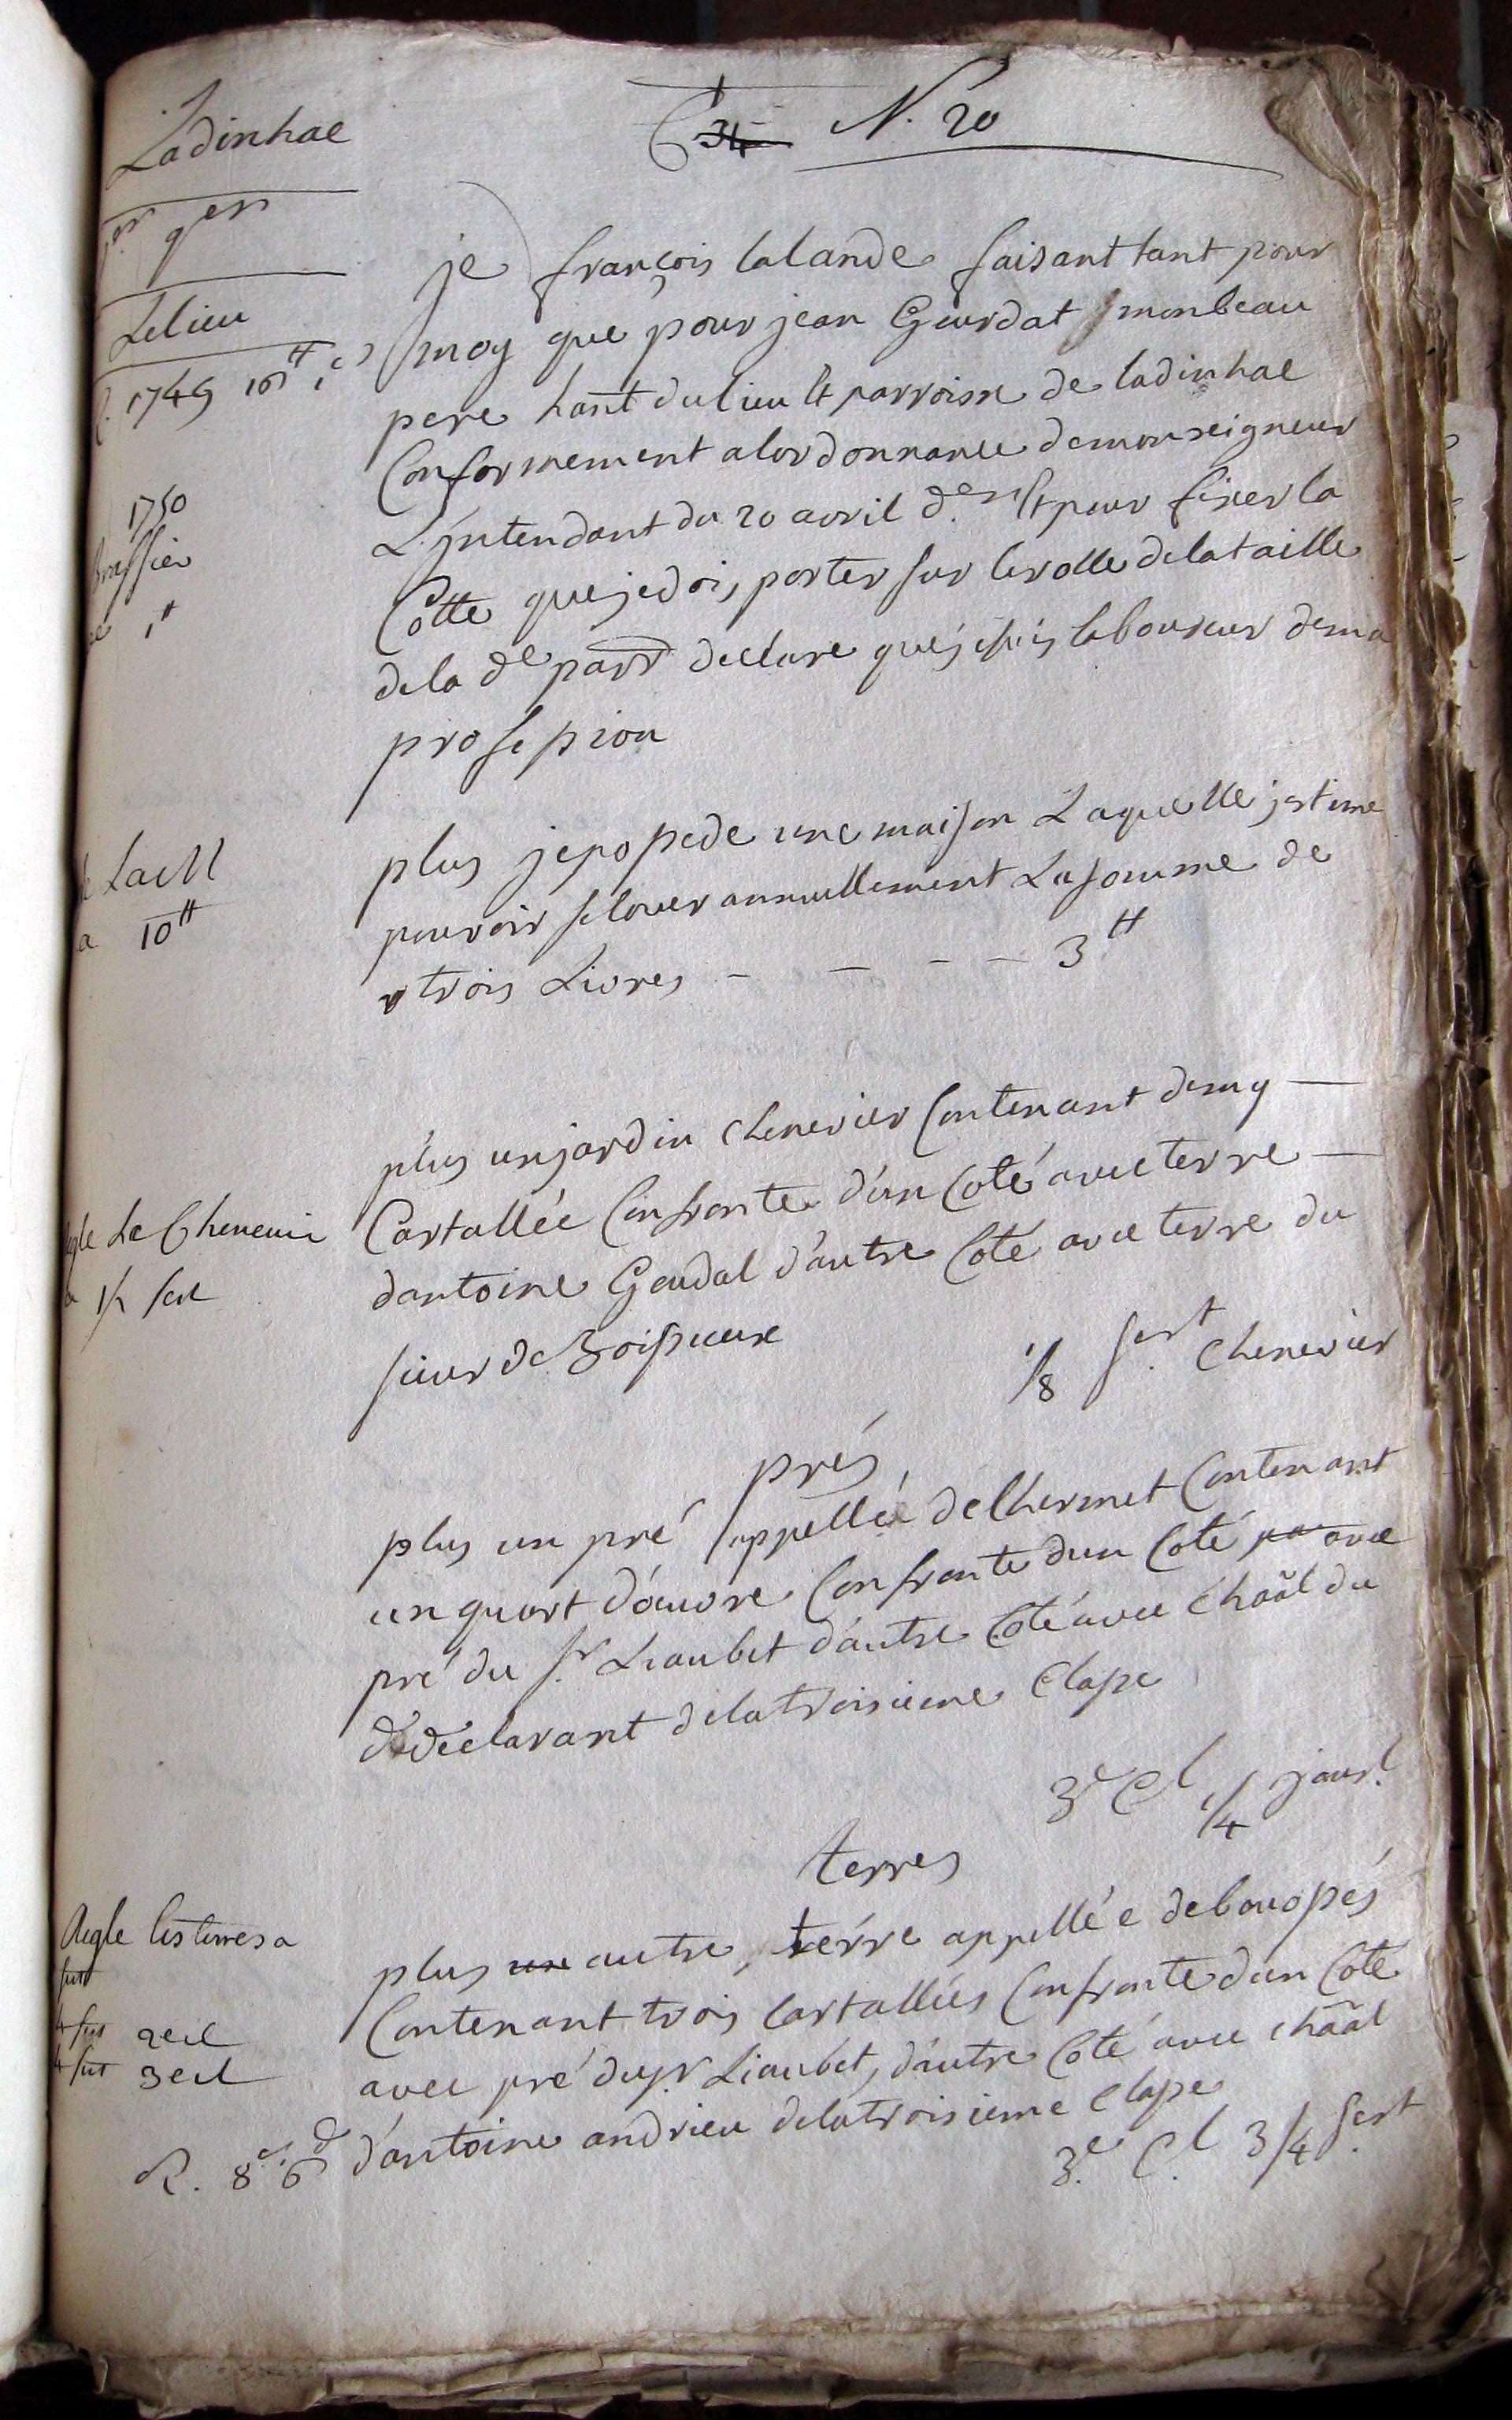 Ladinhac
N. 20
34
per qer
Lelieu
1749 16 ₶ 1 s
je françois lalande faisant tant pour
moy que pour jean Gourdat monbeau
pere hant dulieu et parroisse de ladinhac
Conformement alordonnance demonseigneur
L'jntendant du 20 avril d.er Et pour fixer la
Cotte quejedois porter sur lerolle delataille
dela de parr declare quéjesuis laboureur dema
profession
1750
Brassier
1 ₶
plus jepossede une maison Laquelle jestime
pouvoir selouer annuellement Lasomme de
trois Livres - - - - 3 ₶
La M
a 10 ₶
plus unjardin chenevier Contenant demy —
Cartallée Confronte d'un Coté avec terre —
dantoine Goudal d'autre Coté avec terre du
sieur de Boissieux
1/8 sest. chenevier
Regle Le Chenevier
a 1/2 sest
prés
plus un pré appellée delhermet Contenant
unquart d'oeuvre Confronte dun Coté avec
pré du sr. Liaubet d'autre Coté avec chaãl du
declarant delatroisieme Classe
3e Cl 1/4 jourl.
terres
plus une autre, terre appellée debouossés
Contenant trois Cartallées Confronte dun Coté
avec pré dusr. Liaubet, d'autre Coté avec chaãl
d'antoine andrieu delatroisieme Classe
3e. C.l 3/4 sest.
Regle les terres a
4 sest 2e cl
4 sest 3e cl
R. 8 s 6 d